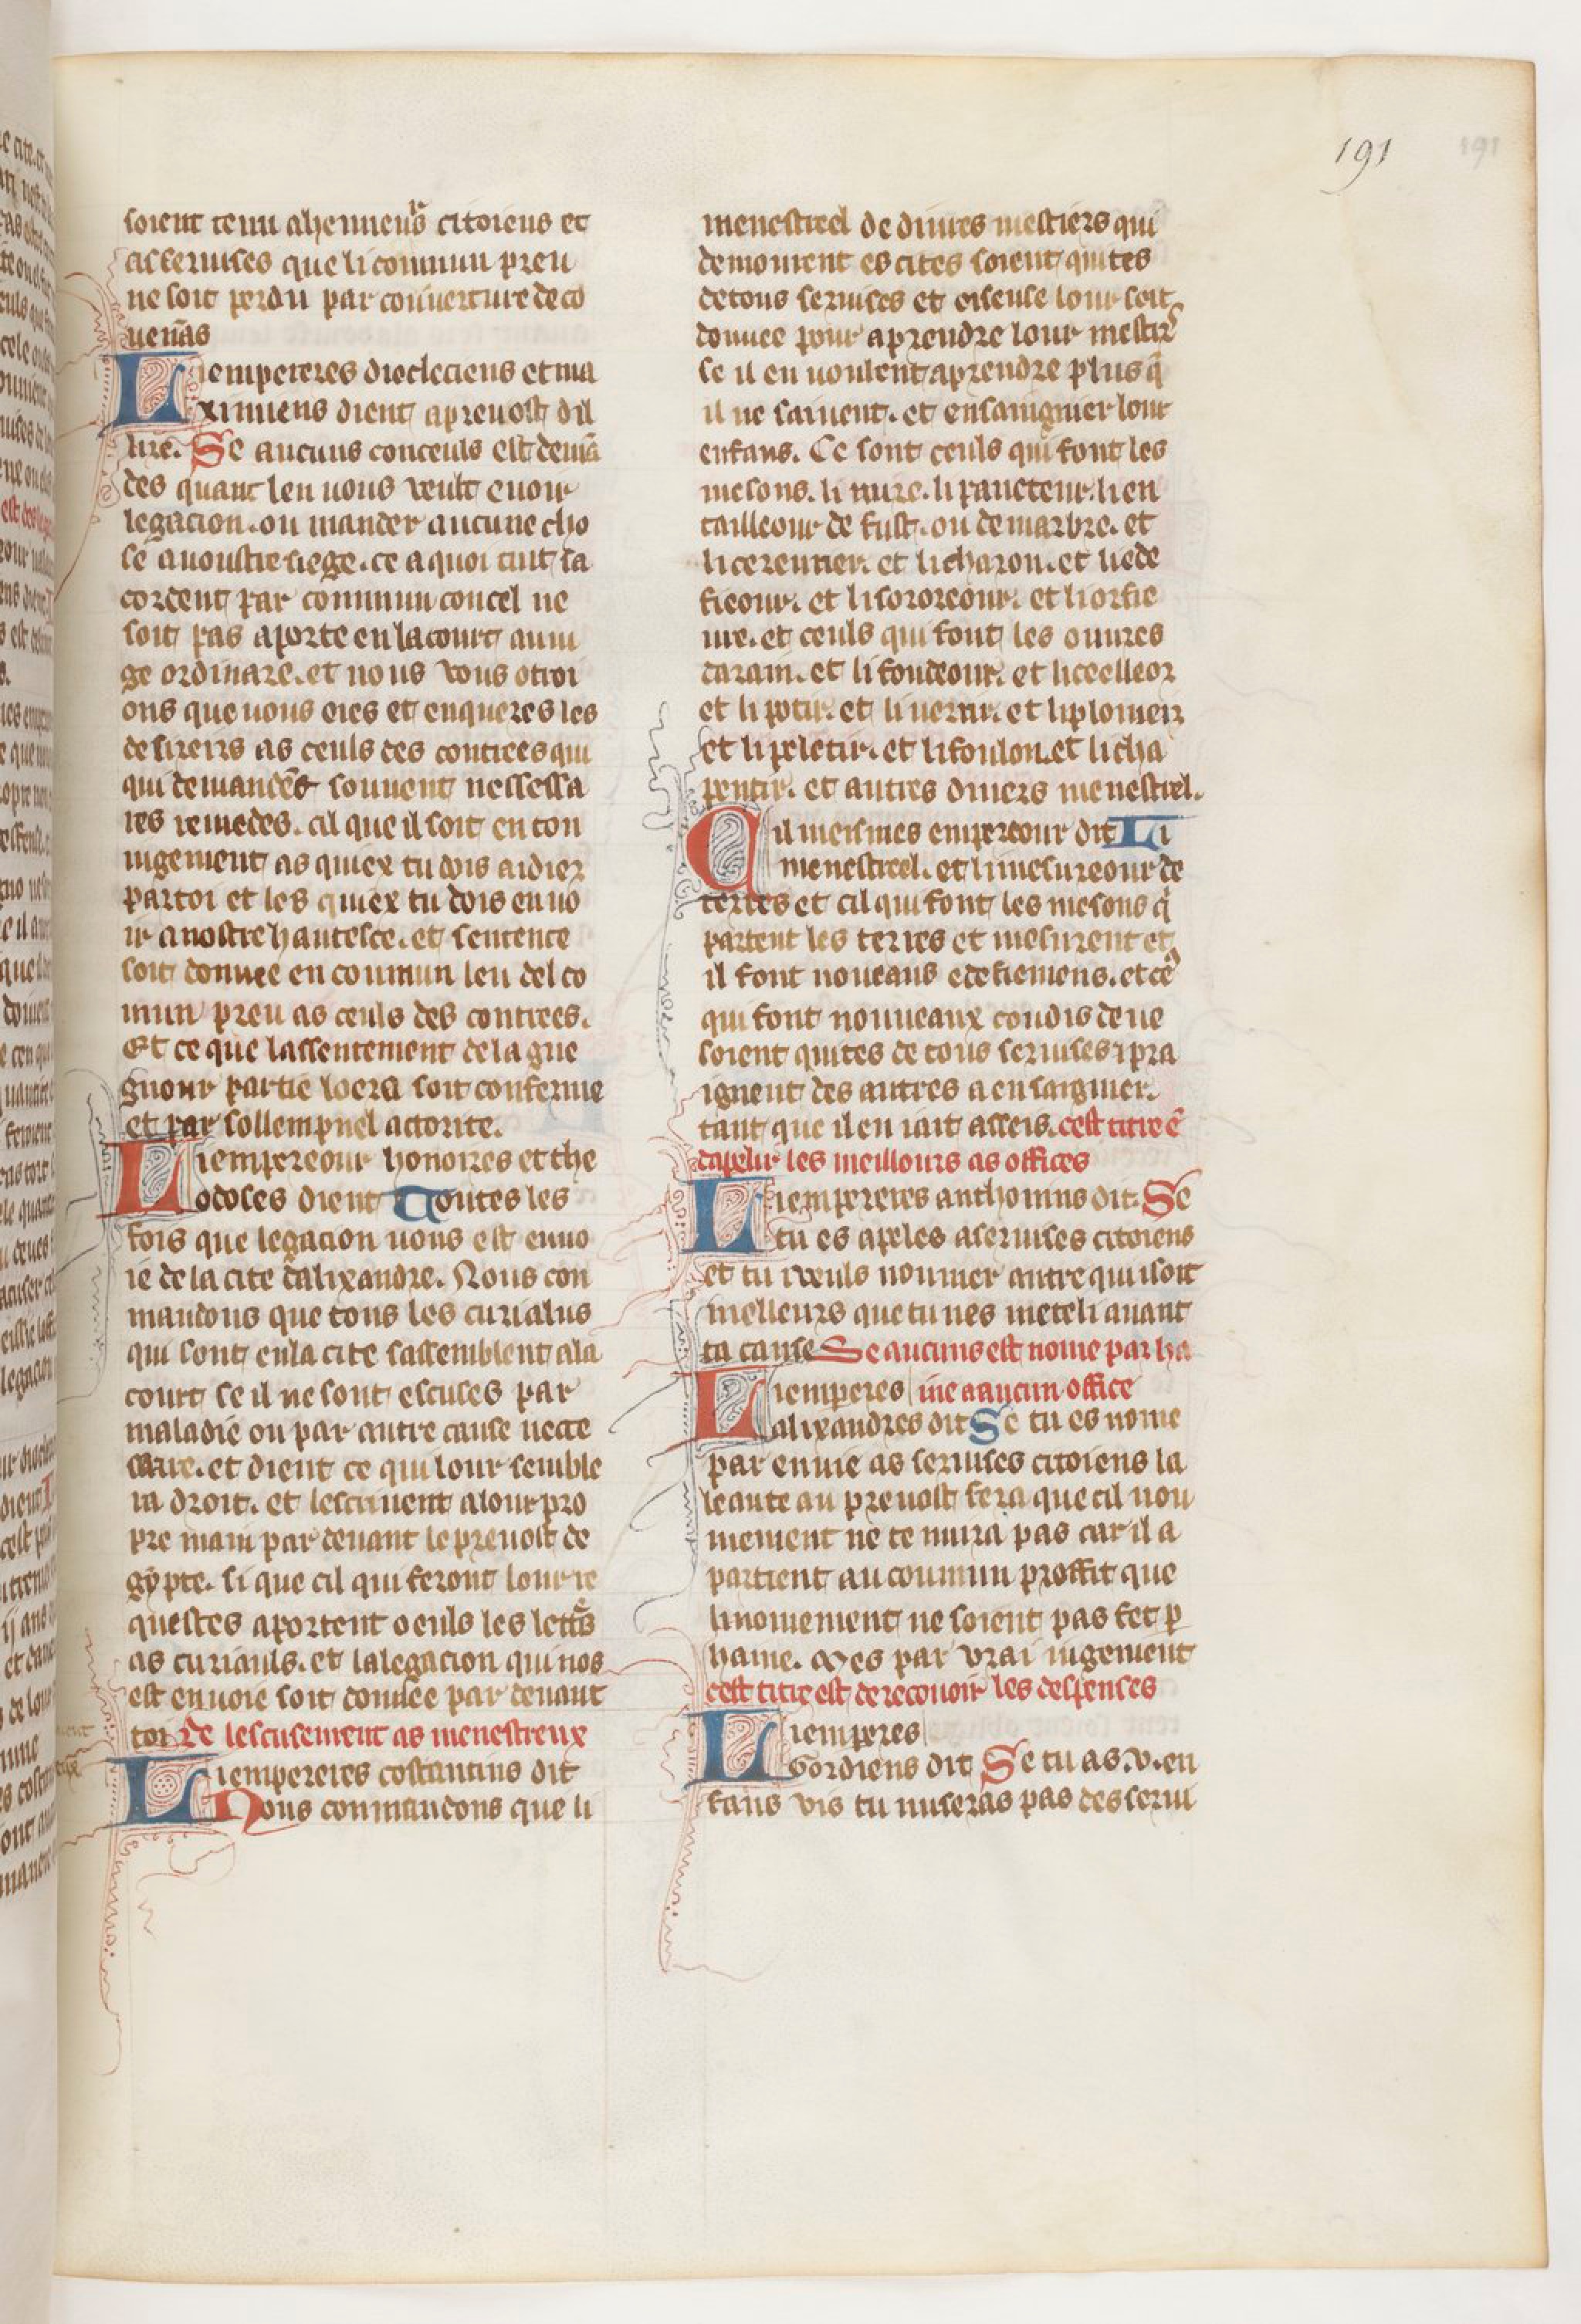 191
soient tenu a henneurs citoiens et
as seruises que li commun preu
ne soit perdu par couuerture de co
uenās
Li empereres diocleciens et ma
ximiens dient a preuost dil
lire. Se aucuns conceuls est demā
des quant len uous veult enuoir
legacion. ou mander aucune cho
se a uoustre siege. ce a quoi tuit sa
cordent par commun concel ne
soit pas aporte en la court au iu
ge ordinare. et nous vous otroi
ons que uous oies et enqueres les
desirers as ceuls des contrees qui
qui demandēt souuent nessessa
res remedes. cil que il soit en ton
iugement as quiex tu dois aidier
par toi et les quiex tu dois enuo
ir a nostre hautesce. et sentence
soit donnee en coumun leu del co
mun preu as ceuls des contrees.
Et ce que lassentement de la gre
gnour partie loera soit conferme
et par sollempnel actorite.
Li empereour honoires et the
odoses dient Toutes les
fois que legacion uous est enuo
ie de la cite dalixandre. Nous con
mandons que tous les curialus
qui sont en la cite sassemblent a la
court se il ne sont escuses par
maladie ou par autre cause nece
saire. et dient ce qui lour semble
ra droit. et lescriuent a lour pro
pre main par deuant le preuost de
gypte. si que cil qui feront lour re
questes aportent o euls les lettrs
as curiauls. et la legacion qui nos
est enuoie soit donnee par deuant
toi De lescusement as menestreux
Li empereres costantins dit
Nous conmandons que li
menestreel de diuers mestiers qui
demourent es cites soient quites
de tous seruises et oiseuse lour soit
donnee pour aprendre lour mestir
se il en uoulent aprendre plus q̄
il ne saiuent. et ensaignier lour
enfans. Ce sont ceuls qui font les
mesons. li mire. li paincteur. li en
tailleour de fust. ou de marbre. et
li cereurier. et li charon. et li ede
fieour. et li sororeour. et li orfie
ure. et ceuls qui font les ouures
darain. et li fondeour. et li ceelleor
et li potir. et li uerrir. et li plomeir
et li peletir. et li foulon. et li cha
pentir. et autres diuers menestrel.
Cil meismes empereour dit Li
menestreel. et li mesureour de
terres et cil qui font les mesons q̄
partent les terres et mesurent et
il font noueaus edefiemens. et ce
qui font nouueaux condis deue
soient quites de tous seruises 7 pra
ignent des autres a ensaignier.
tant que il en iait asseis. cest titre ē
dapelir les meillours as offices
Li empereres anthonins dit. Se
tu es apeles a seruises citoiens
et tu i veuls noumer autre qui soit
meilleurs que tu nes mete li auant
ta cause Se aucuns est nome par ha
Li emperes ine a aucun office
alixandres dit Se tu es nome
par enuie as seruises citoiens la
leaute au preuost fera que cil nou
mement ne te nuira pas car il a
partient au coumun proffit que
li nomement ne soient pas fet p
haine. Mes par vrai iugement
cest titre est de recouoir les despenses
Li emperes
Gordiens dit Se tu as .v. en
fans vis tu nuseras pas des serui